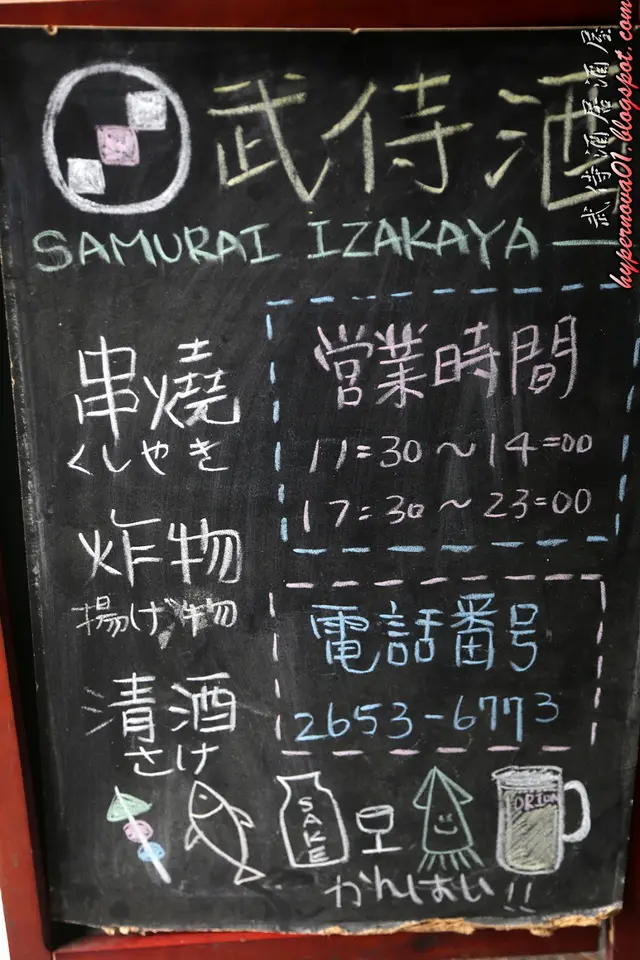 武侍酒
SAMURAI IZAKAYA
串燒
くしやき
炸物
揚げ物
清酒
さけ
営業時間
11:30～14:00
17:30～23:00
電話番号
2653-6773
SAKE
ORION
かんぱい!!
武侍酒居酒屋
hypernova01.blogspot.com